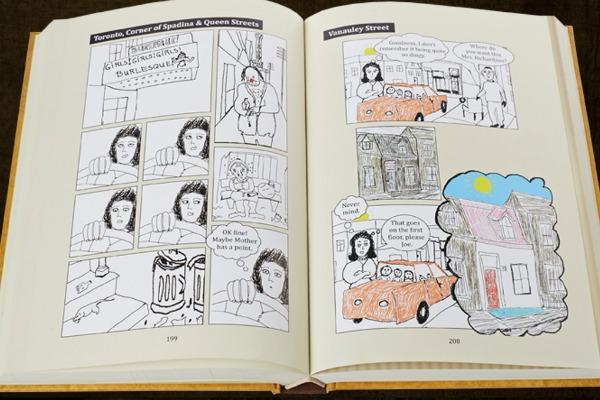 Toronto, Corner of Spadina & Queen Streets
GIRLS! GIRLS! GIRLS!
BURLESQUE!
OK fine!
Maybe Mother
has a point.
199
Vanauley Street
Goodness. I don't
remember it being quite
so dingy.
Where do
you want this
Mrs. Richardson?
Never
mind.
That goes
on the first
floor, please
Joe.
200